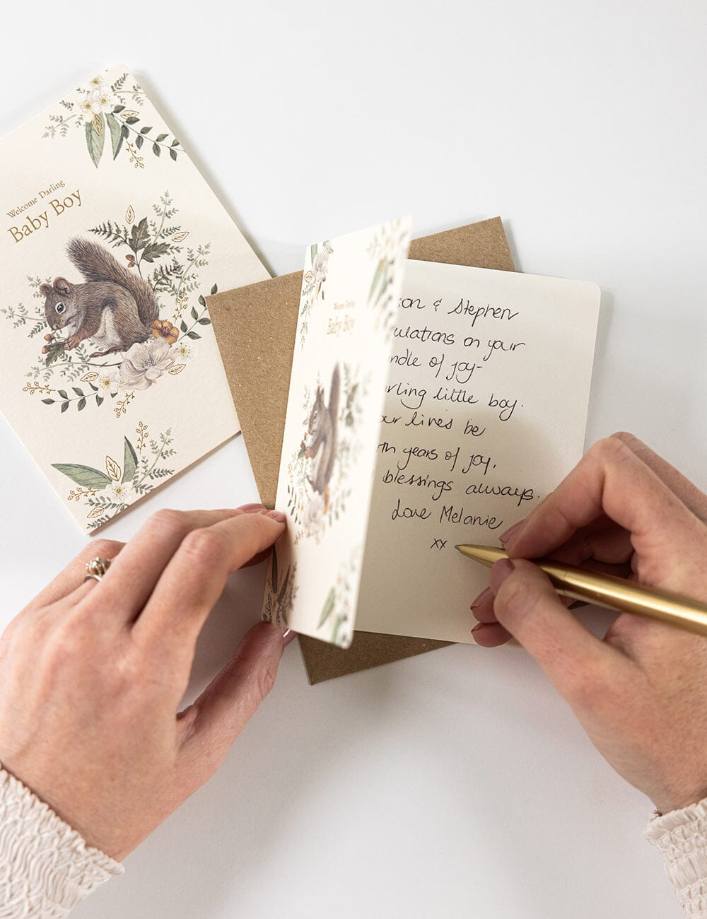 Welcome Darling
Baby Boy
Welcome Darling
Baby Boy
& Stephen
on your
of joy-
little boy.
lives be
years of joy,
blessings always.
Love Melanie
xx